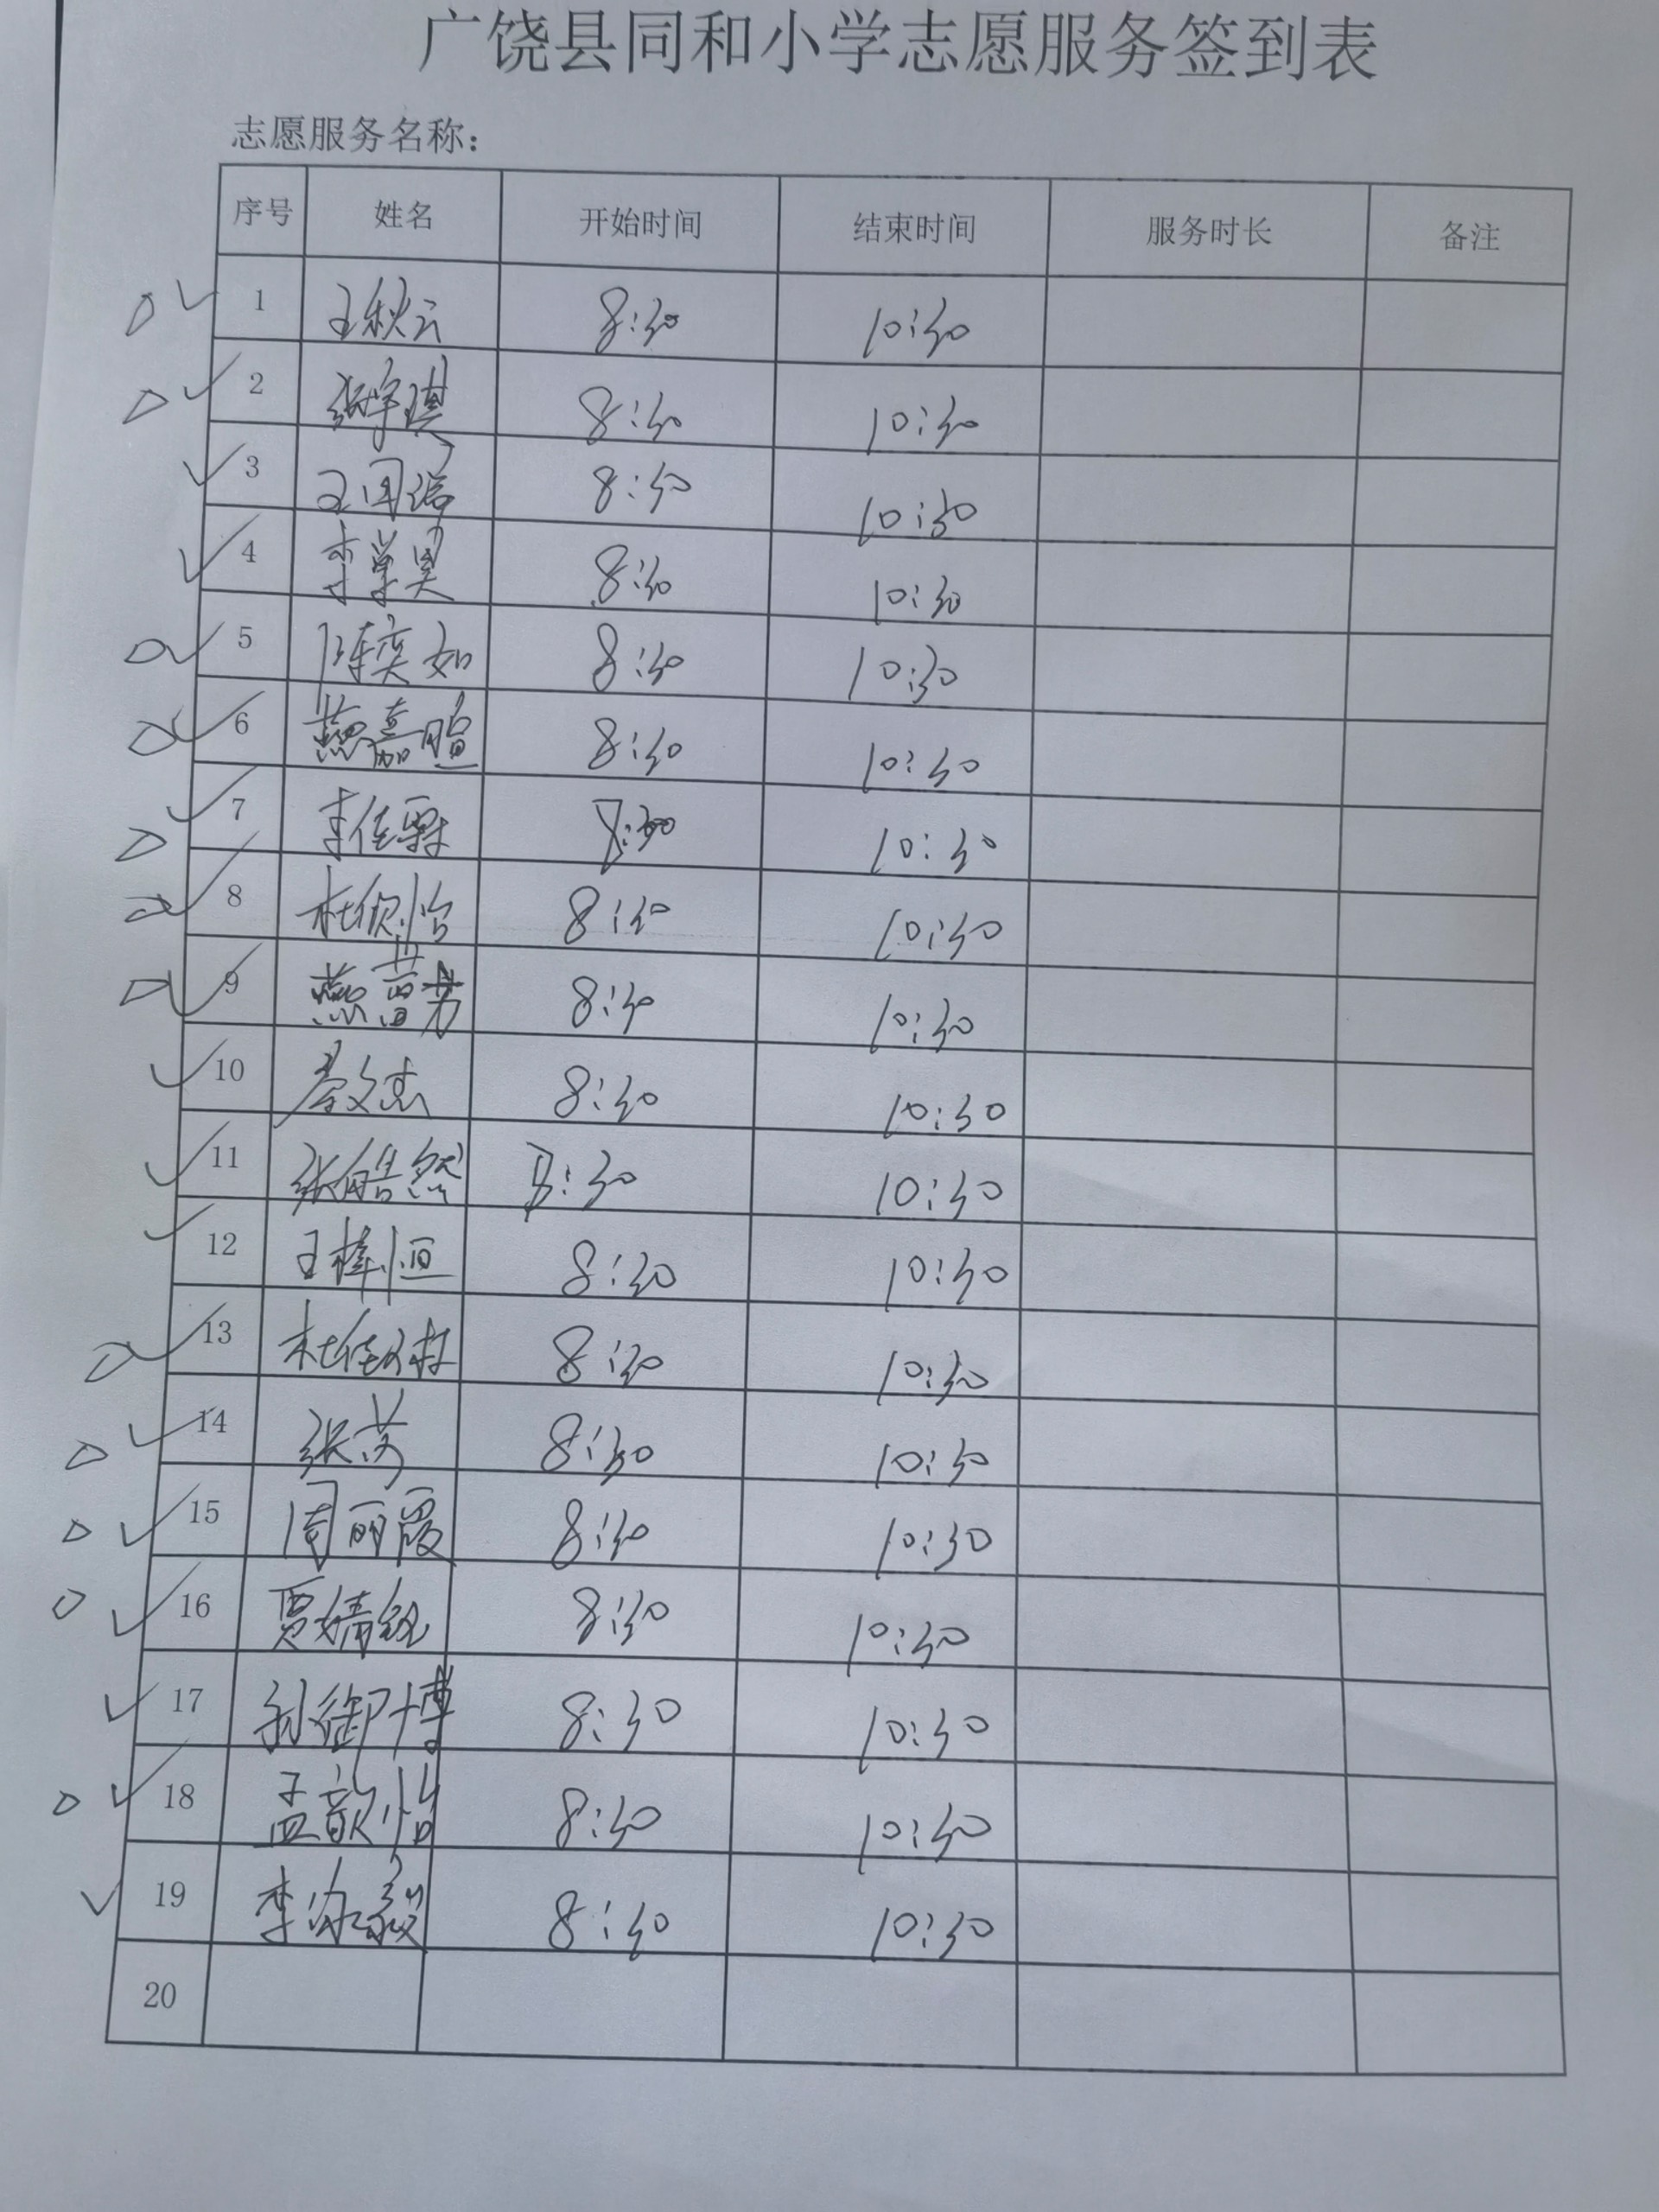 广饶县同和小学志愿服务签到表
志愿服务名称：
序号 姓名 开始时间 结束时间 服务时长 备注
1 王秋云 8:30 10:30
2 张宇琪 8:30 10:30
3 王国瑞 8:30 10:30
4 李学昊 8:30 10:30
5 陈奕如 8:30 10:30
6 燕嘉暄 8:30 10:30
7 李佳霖 8:30 10:30
8 杜欣怡 8:30 10:30
9 燕苗芳 8:30 10:30
10 文杰 8:30 10:30
11 张皓然 8:30 10:30
12 王梓恒 8:30 10:30
13 杜佳 8:30 10:30
14 张芮 8:30 10:30
15 周丽霞 8:30 10:30
16 贾婧 8:30 10:30
17 孙御博 8:30 10:30
18 孟歆怡 8:30 10:30
19 李 毅 8:30 10:30
20